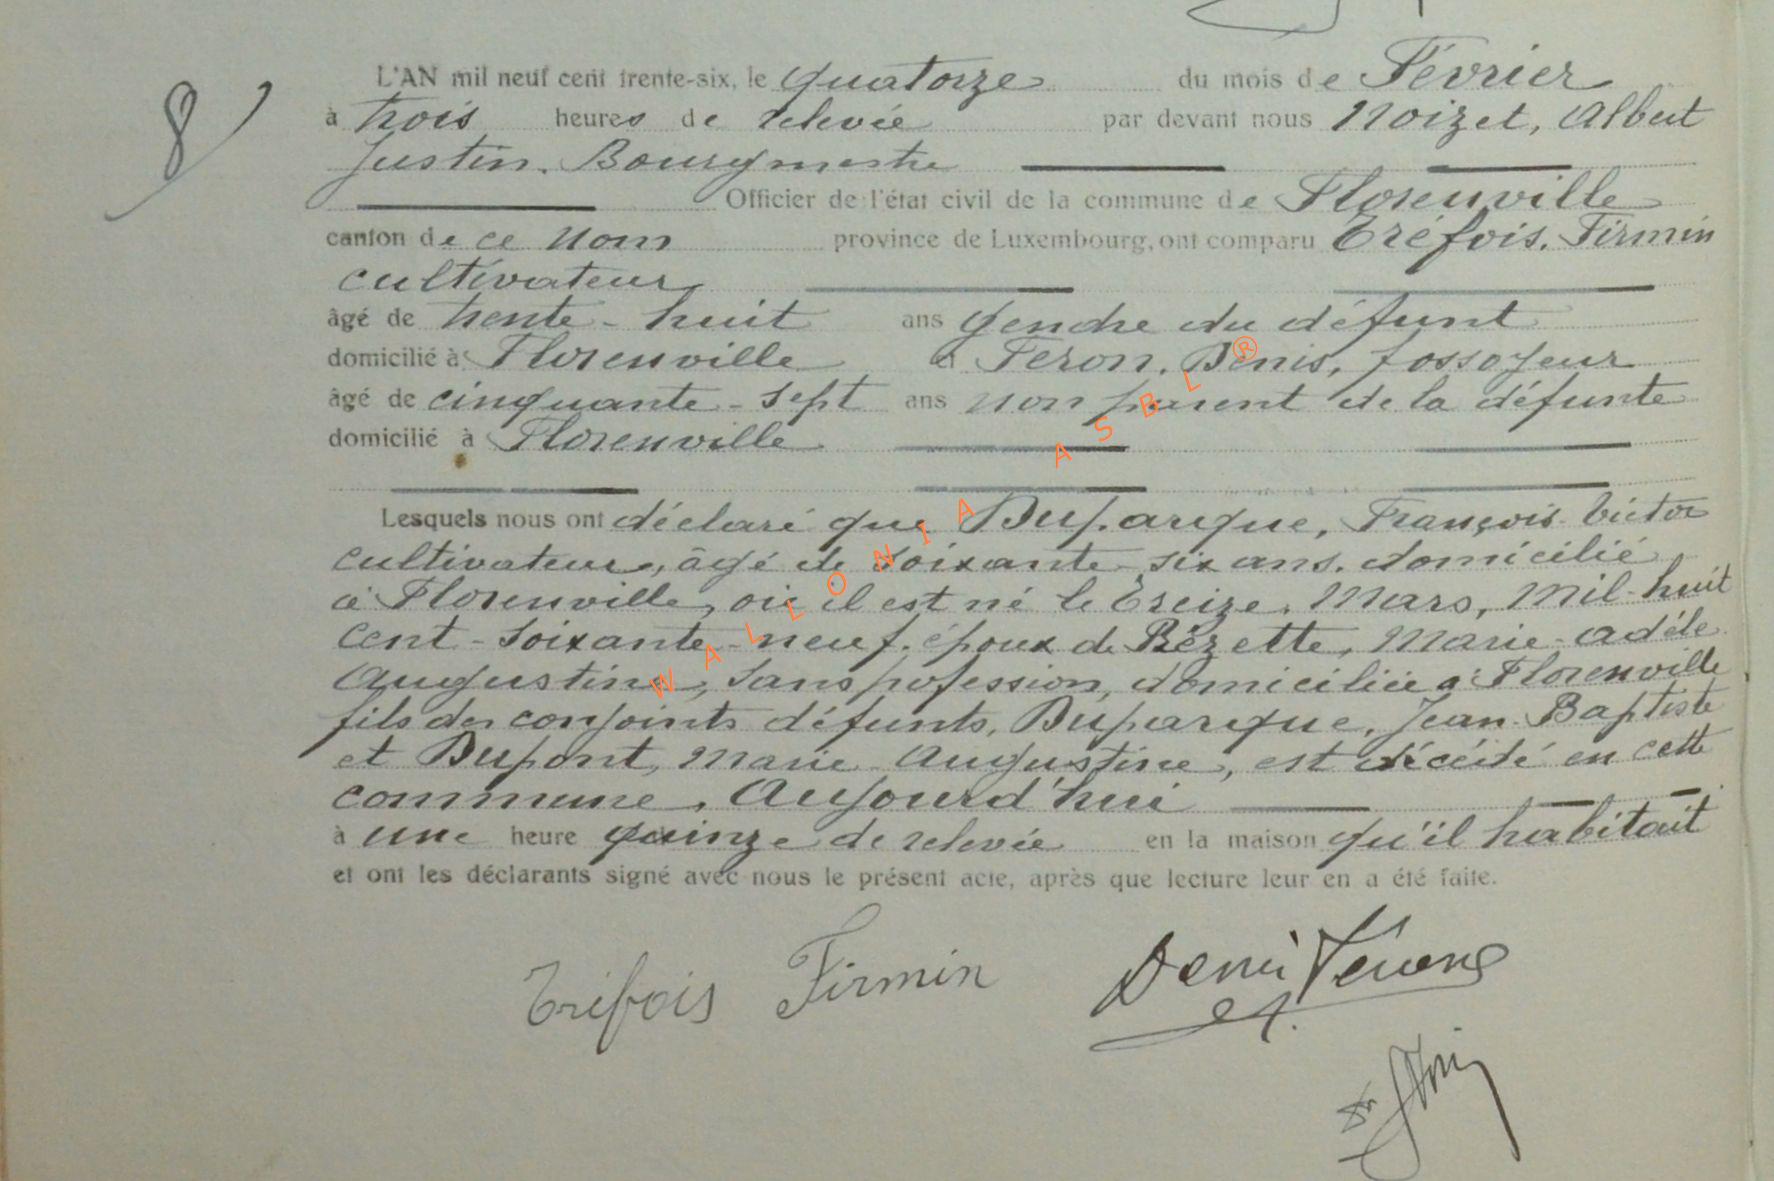 8
L'AN mil neuf cent trente-six, le quatorze du mois de Février
à trois heures de relevée par devant nous Noizet, Albert
Justin. Bourgmestre
Officier de l'état civil de la commune de Florenville
canton de ce nom province de Luxembourg, ont comparu Tréfois. Firmin
cultivateur
âgé de trente-huit ans gendre du défunt
domicilié à Florenville et Feron, Denis, fossoyeur
âgé de cinquante-sept ans non parent de la défunte
domicilié à Florenville
Lesquels nous ont déclaré que Duparque, François-Victor
cultivateur, âgé de soixante-six ans. domicilié
à Florenville, où il est né le Treize, Mars, Mil-huit
cent-soixante-neuf. époux de Bézette, Marie-Adéle
Augustine, sans pofession, domiciliée à Florenville
fils des conjoints défunts, Duparque, Jean-Baptiste
et Dupont, Marie-Augustine, est décédé en cette
commune, Aujourd'hui
à une heure quinze de relevée en la maison qu'il habitait
et ont les déclarants signé avec nous le présent acte, après que lecture leur en a été faite.
Tréfois Firmin Denis Féron
WALLONIA ASBL ®